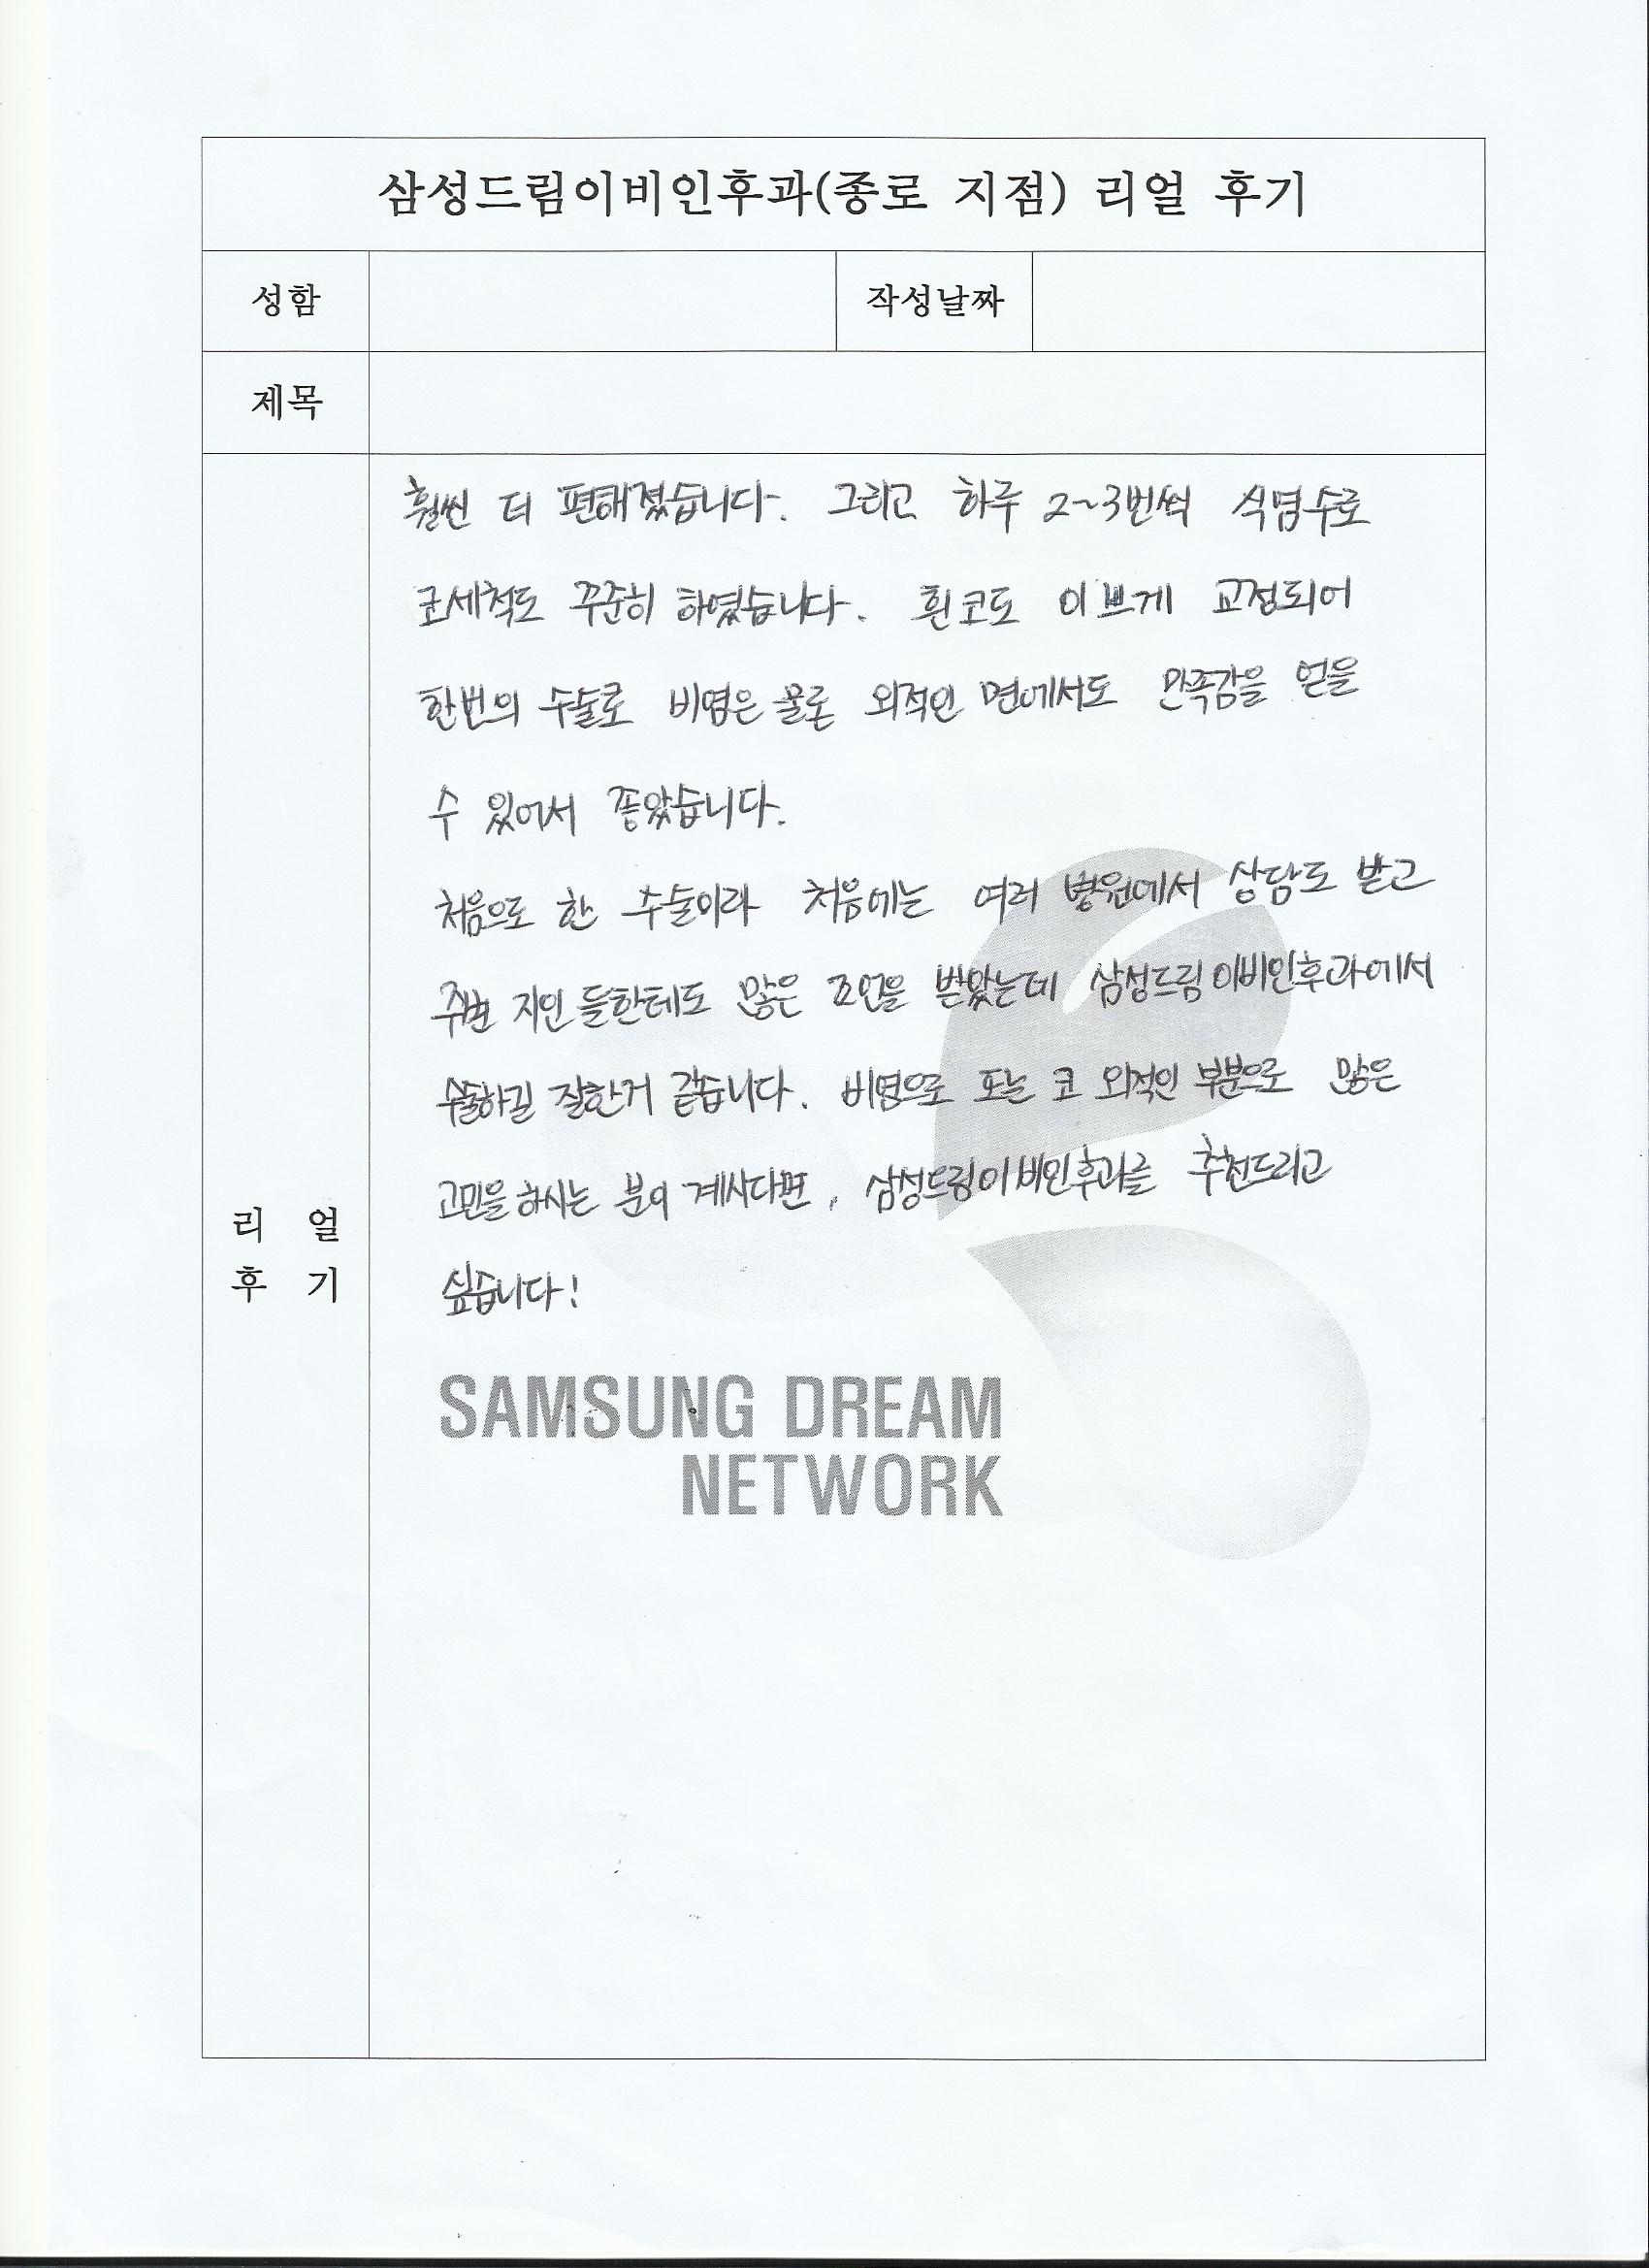 삼성드림이비인후과(종로 지점) 리얼 후기
성함
작성날짜
제목
훨씬 더 편해졌습니다. 그리고 하루 2~3번씩 식염수로
코세척도 꾸준히 하였습니다. 휜코도 이쁘게 교정되어
한번의 수술로 비염은 물론 외적인 면에서도 만족감을 얻을
수 있어서 좋았습니다.
처음으로 한 수술이라 처음에는 여러 병원에서 상담도 받고
주변 지인들한테도 많은 조언을 받았는데 삼성드림이비인후과에서
수술하길 잘한거 같습니다. 비염으로 또는 코 외적인 부분으로 많은
고민을 하시는 분이 계시다면, 삼성드림이비인후과를 추천드리고
싶습니다!
리 얼
후 기
SAMSUNG DREAM
NETWORK